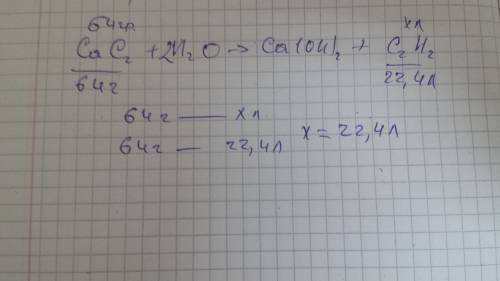 64гр. хл
CaC₂ + 2H₂O → Ca(OH)₂ + C₂H₂
64г 22,4л
64г — хл
64г — 22,4л х = 22,4л